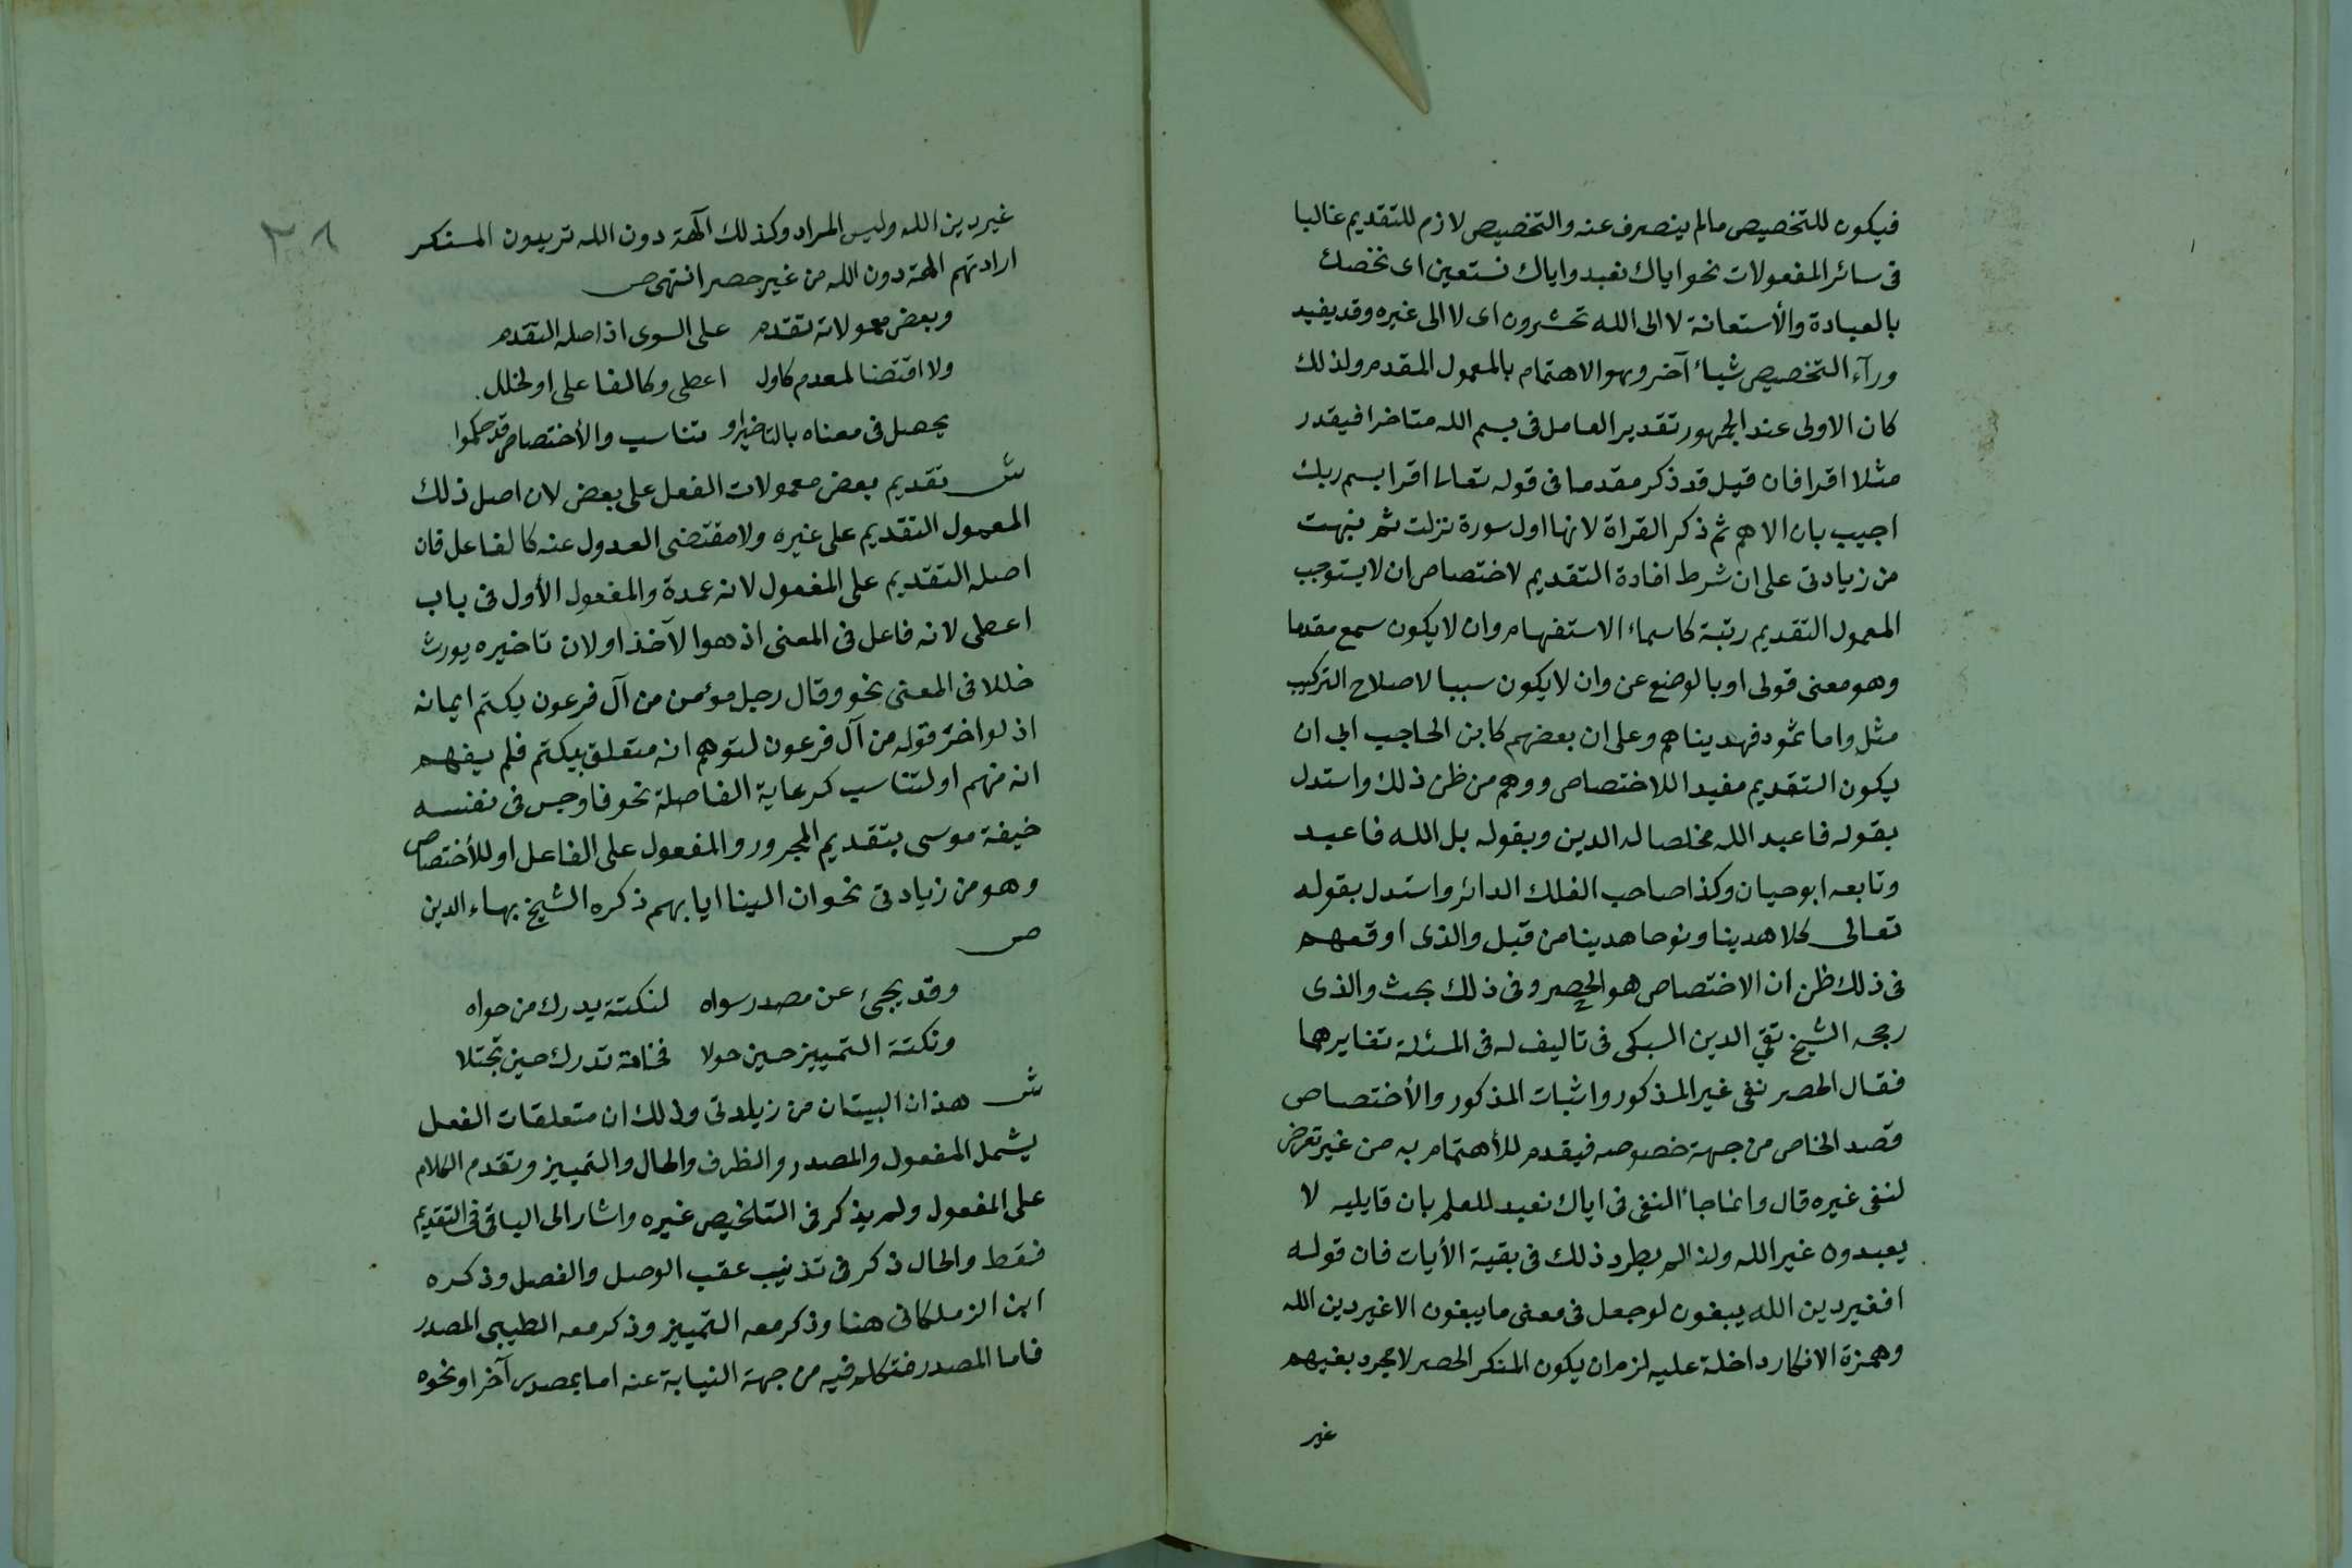 فيكون للتخصيص مالم ينصرف عنه والتخصيص لازم للتقديم غالبا
فى سائر المفعولات نحو اياك نعبد واياك نستعين اى نخصك
بالعبادة والأستعانة لا الى الله تحشرون اى لا الى غيره وقد يفيد
ورآء التخصيص شياء آخر وهو الاهتمام بالمعمول المقدم ولذلك
كان الاولى عند الجمهور تقدير العامل فى بسم الله متاخرا فيقدر
مثلا اقرا فان قيل قد ذكر مقدما فى قوله تعالى اقرا بسم ربك
اجيب بان الاهم ثم ذكر القراة لانها اول سورة نزلت ثم نبهت
من زيادتى على ان شرط افادة التقديم لاختصاص ان لا يستوجب
المعمول التقديم رتبة كاسماء الاستفهام وان لا يكون سمع مقدما
وهو معنى قولى او بالوضع عن وان لا يكون سببا لاصلاح التركيب
مثل واما ثمود فهديناهم وعلى ان بعضهم كابن الحاجب ابى ان
يكون التقديم مفيدا للاختصاص ووهم من ظن ذلك واستدل
بقوله فاعبد الله مخلصا له الدين وبقوله بل الله فاعبد
وتابعه ابو حيان وكذا صاحب الفلك الدائر واستدل بقوله
تعالى كلا هدينا ونوحا هدينا من قبل والذى اوقعهم
فى ذلك ظن ان الاختصاص هو الحصر وفى ذلك بحث والذى
رجحه الشيخ تقي الدين السبكى فى تاليف له فى المسئلة تغايرهما
فقال الحصر نفى غير المذكور واثبات المذكور والأختصاص
قصد الخاص من جهة خصوصه فيقدم للأهتمام به من غير تعرض
لنفى غيره قال وانما جاء النفى فى اياك نعبد للعلم بان قايليه لا
يعبدون غير الله ولذا لم يطرد ذلك فى بقية الأيات فان قوله
افغير دين الله يبغون لو جعل فى معنى ما يبغون الا غير دين الله
وهمزة الانكار داخلة عليه لزم ان يكون المنكر الحصر لا مجرد بغيهم
غير
غير دين الله وليس المراد وكذلك آلهة دون الله تريدون المنكر
ارادتهم الهة دون الله من غير حصر انتهى ص
وبعض معمولاته تقدم على السوى اذ اصله التقدم
ولا اقتضا لمعدم كاول اعطى وكالفاعلى او لخلل
يحصل فى معناه بالتاخير او تناسب والأختصاص قد حكموا
ش تقديم بعض معمولات الفعل على بعض لان اصل ذلك
المعمول التقديم على غيره ولا مقتضى العدول عنه كالفاعل فان
اصله التقديم على المفعول لانه عمدة والمفعول الأول فى باب
اعطى لانه فاعل فى المعنى اذ هو الآخذ او لان تاخيره يورث
خللا فى المعنى نحو وقال رجل مؤمن من آل فرعون يكتم ايمانه
اذ لو اخر قوله من آل فرعون لتوهم انه متعلق بيكتم فلم يفهم
انه منهم او لتناسب كرعاية الفاصلة نحو فاوجس فى نفسه
خيفة موسى بتقديم المجرور والمفعول على الفاعل او للأختصاص
وهو من زيادتى نحو ان الينا ايابهم ذكره الشيخ بهاء الدين
ص
وقد يجئ عن مصدر سواه لنكتة يدرك من حواه
ونكتة التمييز حين حولا فخامة تدرك حين تجتلا
ش هذان البيتان من زيادتى وذلك ان متعلقات الفعل
يشمل المفعول والمصدر والظرف والحال والتمييز وتقدم الكلام
على المفعول ولم يذكر فى التلخيص غيره واشار الى الباقى فى التقديم
فقط والحال ذكر فى تذنيب عقب الوصل والفصل وذكره
ابن الزملكانى هنا وذكر معه التمييز وذكر معه الطيبى المصدر
فاما المصدر فتكلم فيه من جهة النيابة عنه اما بمصدر آخر او نحوه